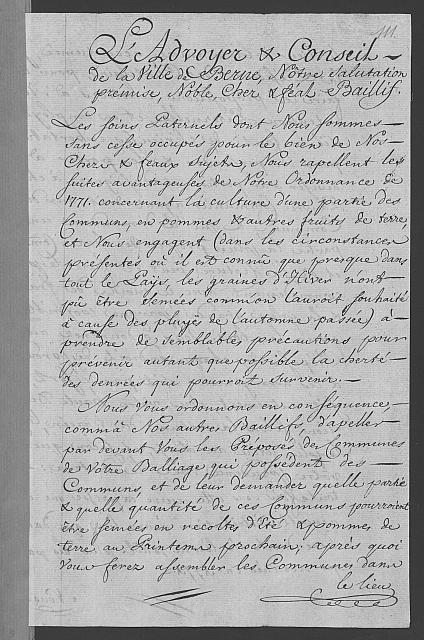 111.
L'Advoyer & Conseil
de la Ville de Berne, Nôtre Salutation
premise, Noble, Cher & féal Baillif.
Les soins Paternels dont Nous sommes
sans cesse occupés pour le bien de Nos
Chers & feaux Sujets, Nous rapellent les
suites avantageuses de Notre Ordonnance de
1771. concernant la culture d'une partie des
Communs, en pommes & autres fruits de terre,
et Nous engagent (dans les circonstances
présentes où il est connû que presque dans
tout le Païs, les graines d'Hiver n'ont
pû être semées comm'on l'auroit souhaité
à cause des pluÿes de l'automne passée) à
prendre de semblables précautions pour
prévenir autant que possible la cherté
des denrées qui pourroit survenir.
Nous Vous ordonnons en conséquence,
comm'à Nos autres Baillifs, d'apeller
par devant Vous les Préposés des Communes
de Vôtre Balliage qui possèdent des
Communs, et de leur demander quelle partie
& quelle quantité de ces Communs pourroient
être semées en recoltes d'Eté & pommes de
terre au Printems prochain; après quoi
Vous ferez assembler les Communes dans
le lieu